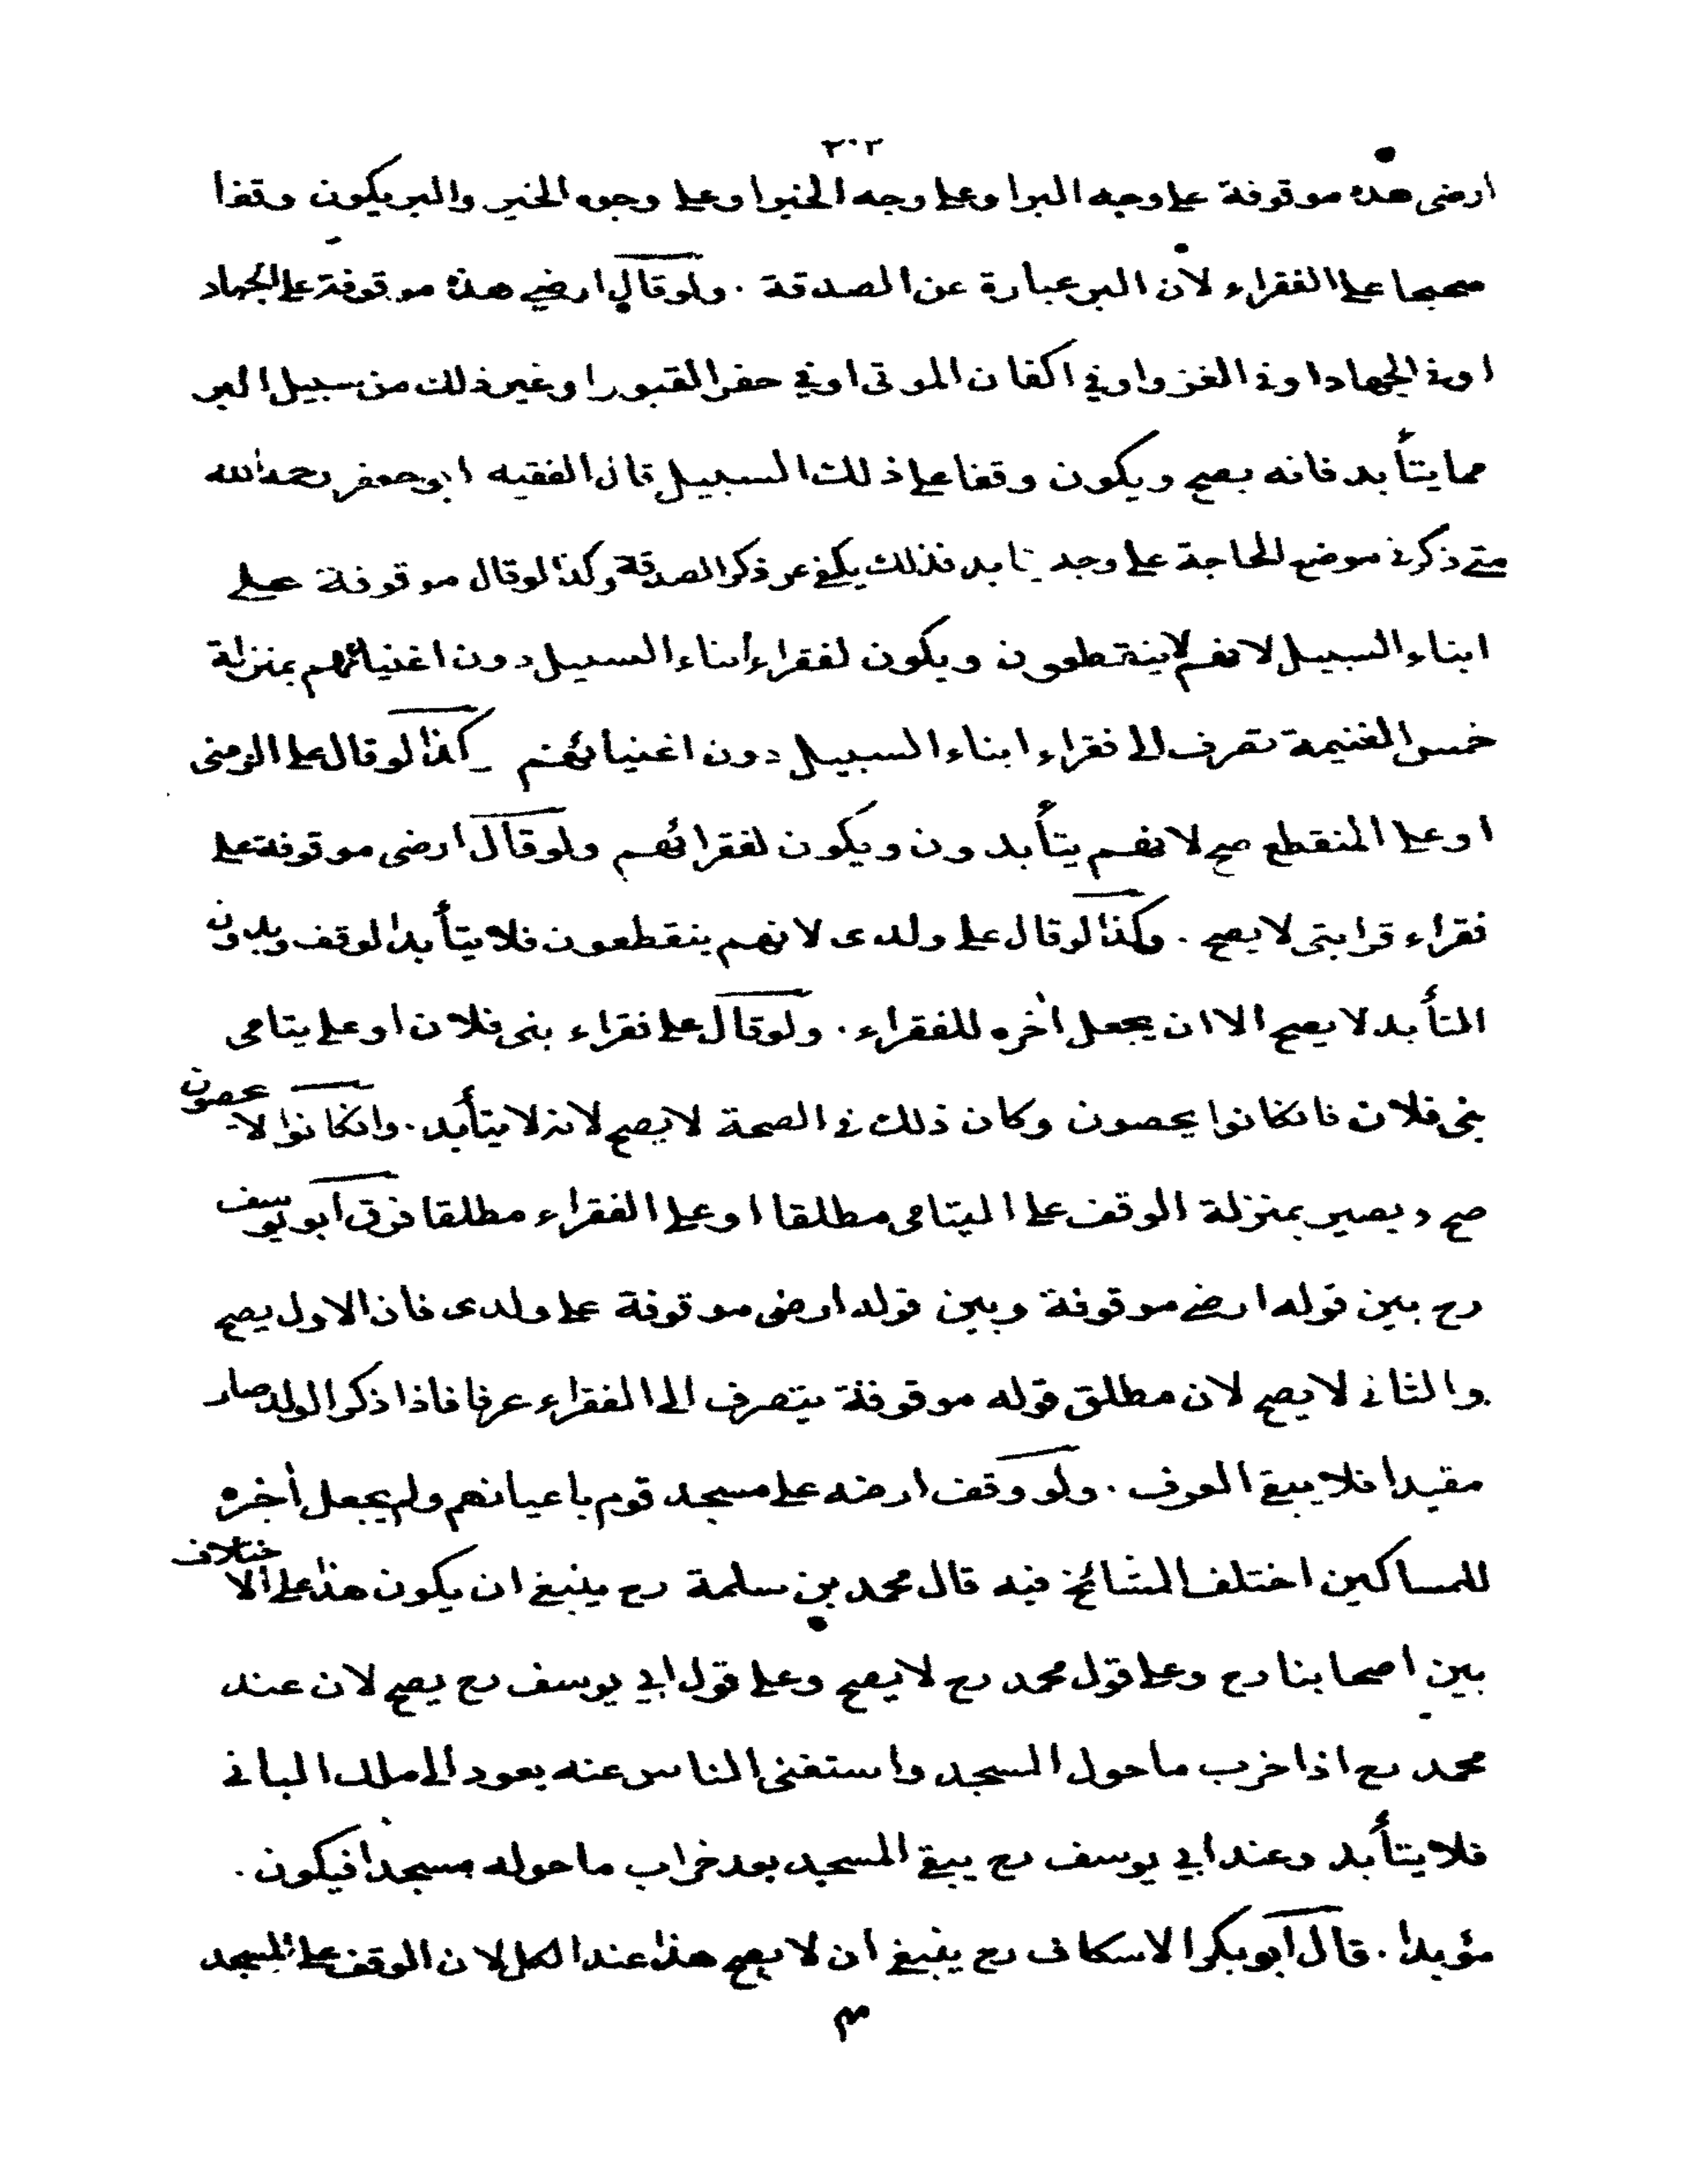 ٣٠٣
ارضى هذه موقوفة على وجه البر او على وجه الخير او على وجوه الخير والبر يكون وقفا
صحيحا على الفقراء لان البر عبارة عن الصدقة . ولو قال ارضي هذه موقوفة على الجهاد
او في الجهاد او في الغزو او في اكفان الموتى او في حفر القبور او غير ذلك من سبيل البر
مما يتأبد فانه يصح ويكون وقفا على ذلك السبيل قال الفقيه ابو جعفر رحمه الله
متى ذكر في موضع الحاجة على وجه يتابد فذلك يكفي عن ذكر الصدقة وكذا لو قال موقوفة على
ابناء السبيل لانهم لا ينقطعون ويكون لفقراء ابناء السبيل دون اغنيائهم بمنزلة
خمس الغنيمة تصرف الى فقراء ابناء السبيل دون اغنيائهم وكذا لو قال على الزمنى
او على المنقطع صح لانهم يتأبدون ويكون لفقرائهم ولو قال ارضى موقوفة على
فقراء قرابتى لا يصح . وكذا لو قال على ولدى لانهم ينقطعون فلا يتأبد الوقف وبدون
التأبد لا يصح الا ان يجعل اخره للفقراء . ولو قال على فقراء بنى فلان او على يتامى
بنى فلان فانكانوا يحصون وكان ذلك في الصحة لا يصح لانه لا يتأبد . وانكانوا لا يحصون
صح ويصير بمنزلة الوقف على اليتامى مطلقا او على الفقراء مطلقا فرق ابو يوسف
رح بين قوله ارضي موقوفة وبين قوله ارضى موقوفة على ولدى فان الاول يصح
والثاني لا يصح لان مطلق قوله موقوفة يتصرف الى الفقراء عرفا فاذا ذكر الولد صار
مقيدا فلا يبقى العرف . ولو وقف ارضه على مسجد قوم باعيانهم ولم يجعل اخره
للمساكين اختلف المشائخ فيه قال محمد بن سلمة رح ينبغي ان يكون هذا على الاختلاف
بين اصحابنا رح وعلى قول محمد رح لا يصح وعلى قول ابي يوسف رح يصح لان عند
محمد رح اذا خرب ما حول المسجد واستغنى الناس عنه يعود الى ملك البانى
فلا يتأبد وعند ابي يوسف رح يبقى المسجد بعد خراب ما حوله مسجدا فيكون .
مؤبدا . قال ابو بكر الاسكاف رح ينبغي ان لا يصح هذا عند الكل لان الوقف على المسجد